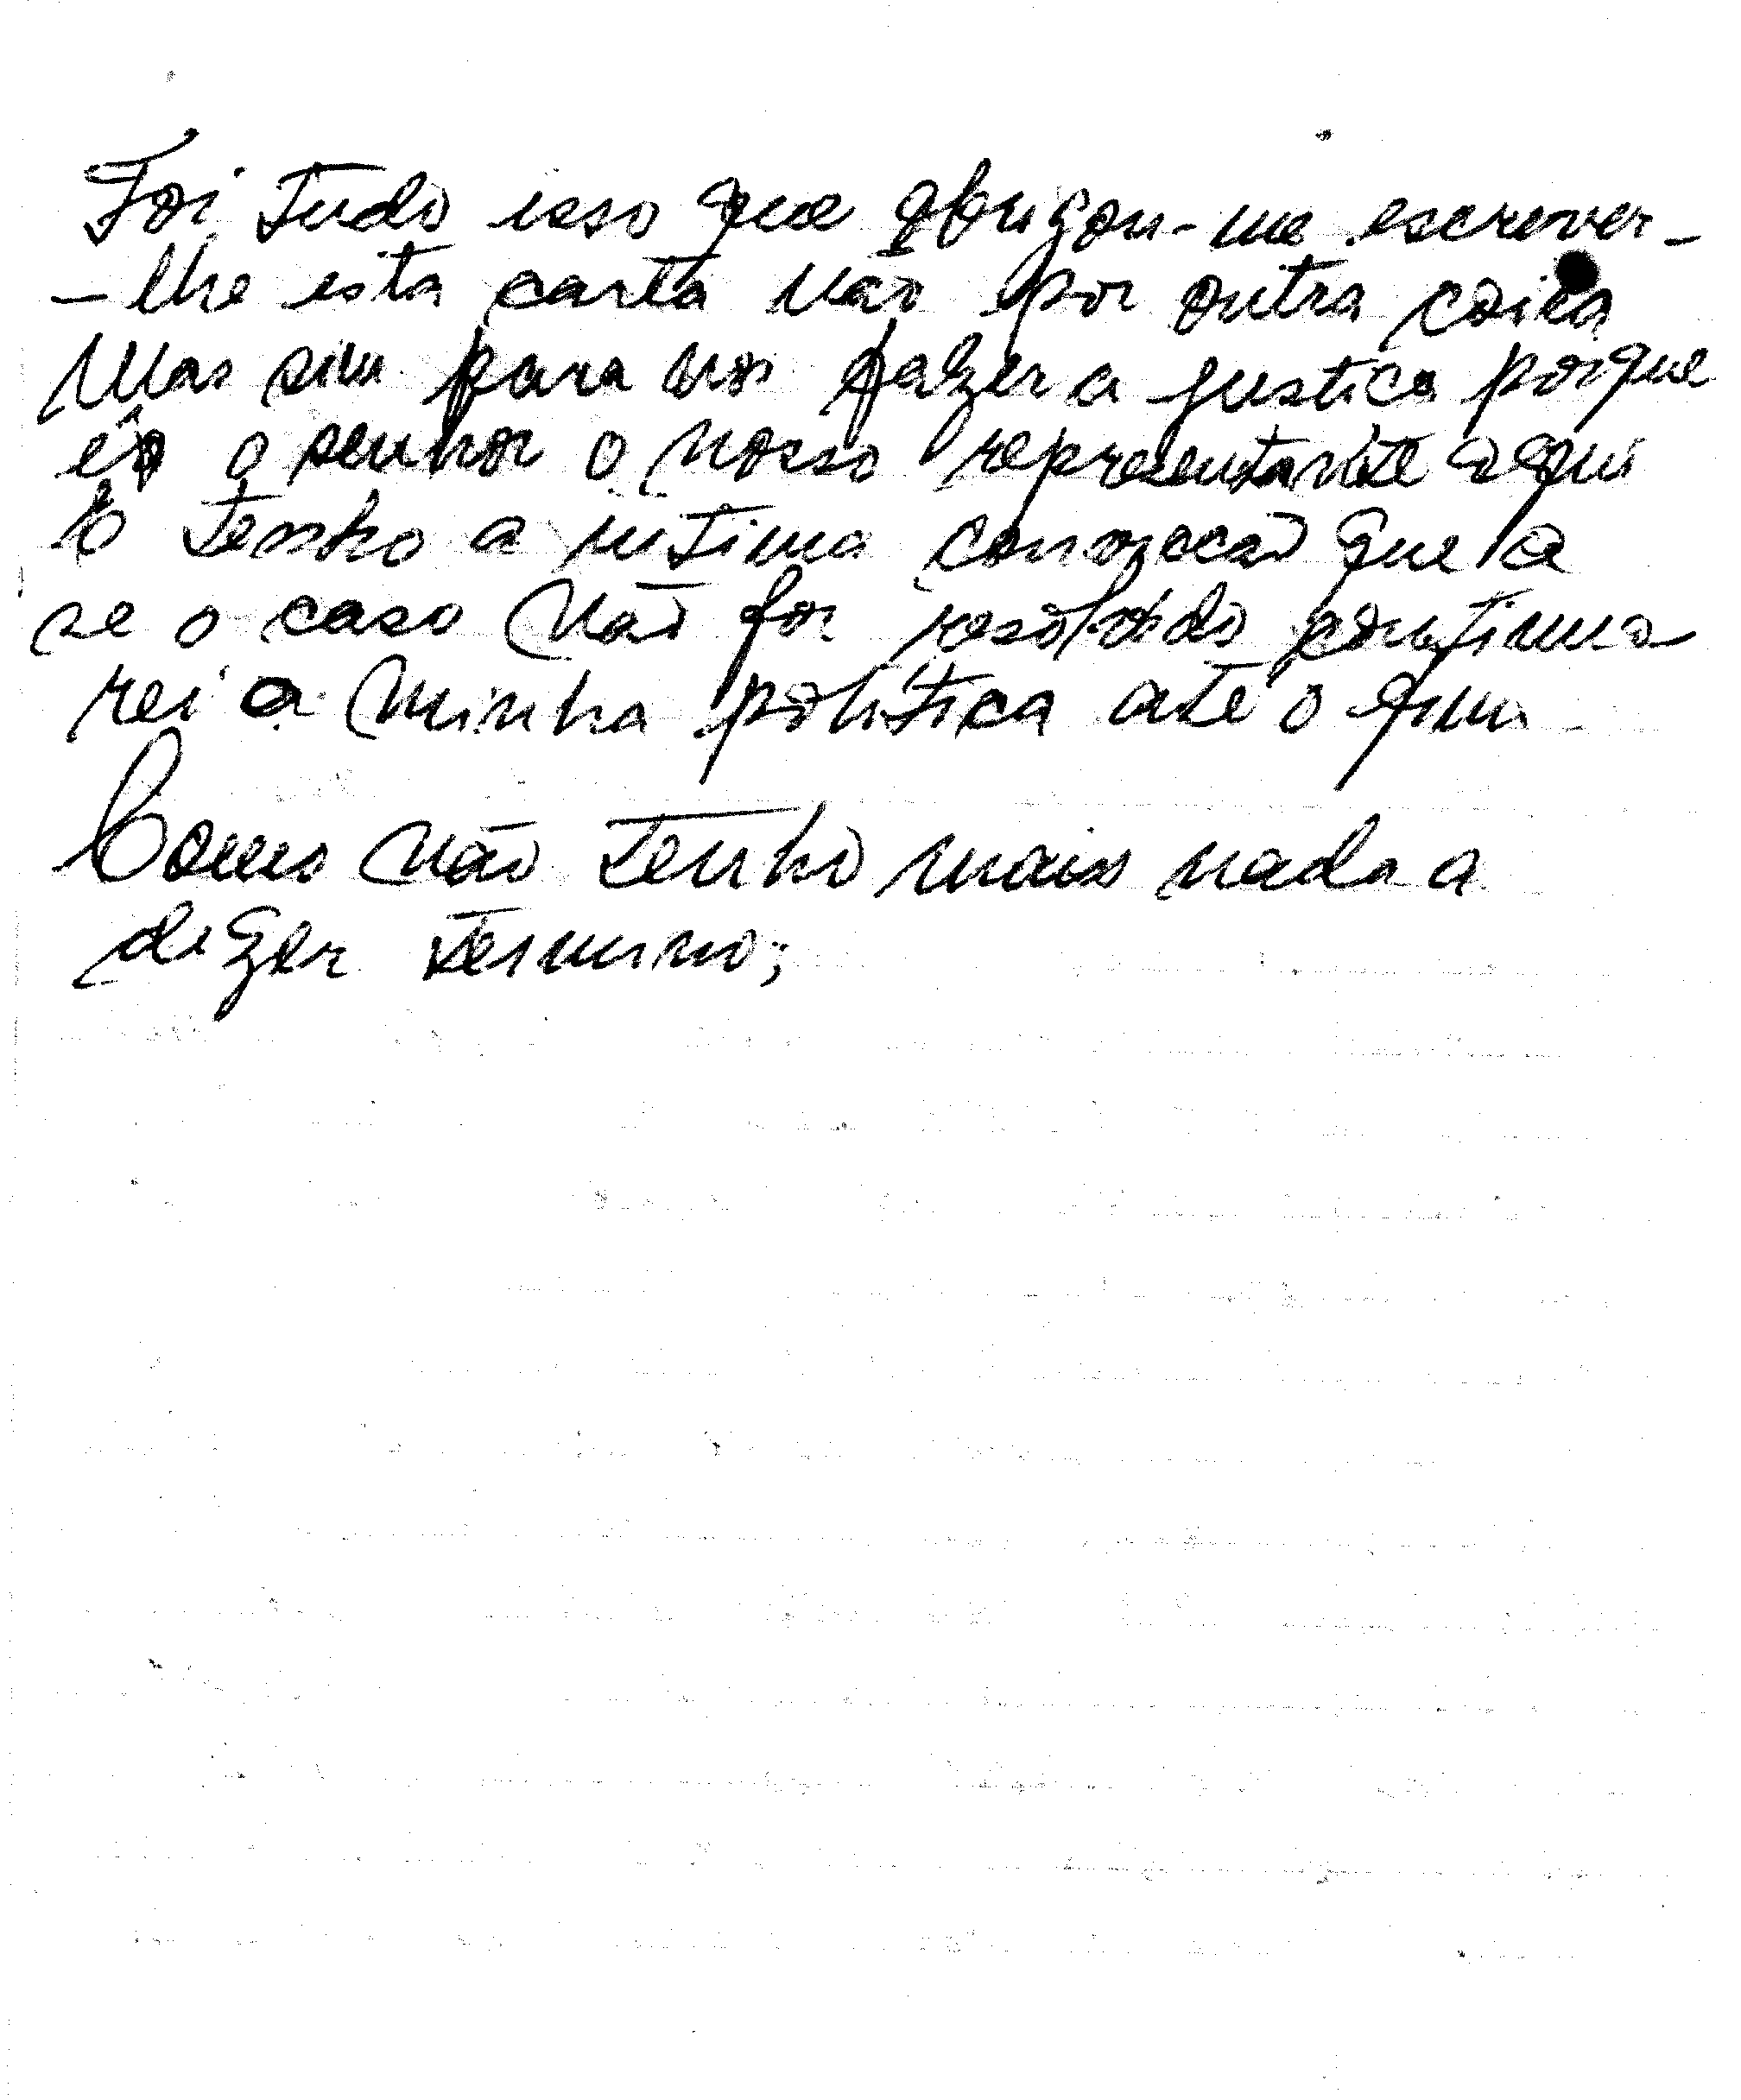 Foi tudo isso que obrigou-me escrever-
-lhe esta carta não por outra coisa
Mas sim para nos falzer a justica porque
é o senhor o nosso representante aqui
E tenho a intima conviccão que
se o caso não for resolvido continua
rei a minha politica até o fim
Como não tenho mais nada a
dizer termino;